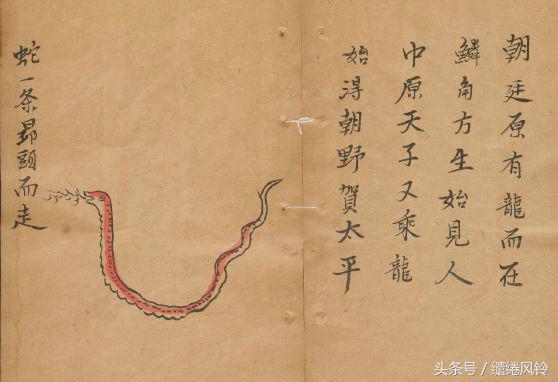 朝廷原有龍而在
鱗角方生始見人
中原天子又乘龍
始得朝野賀太平
蛇一条昻頭而走
头条号／缱绻风铃